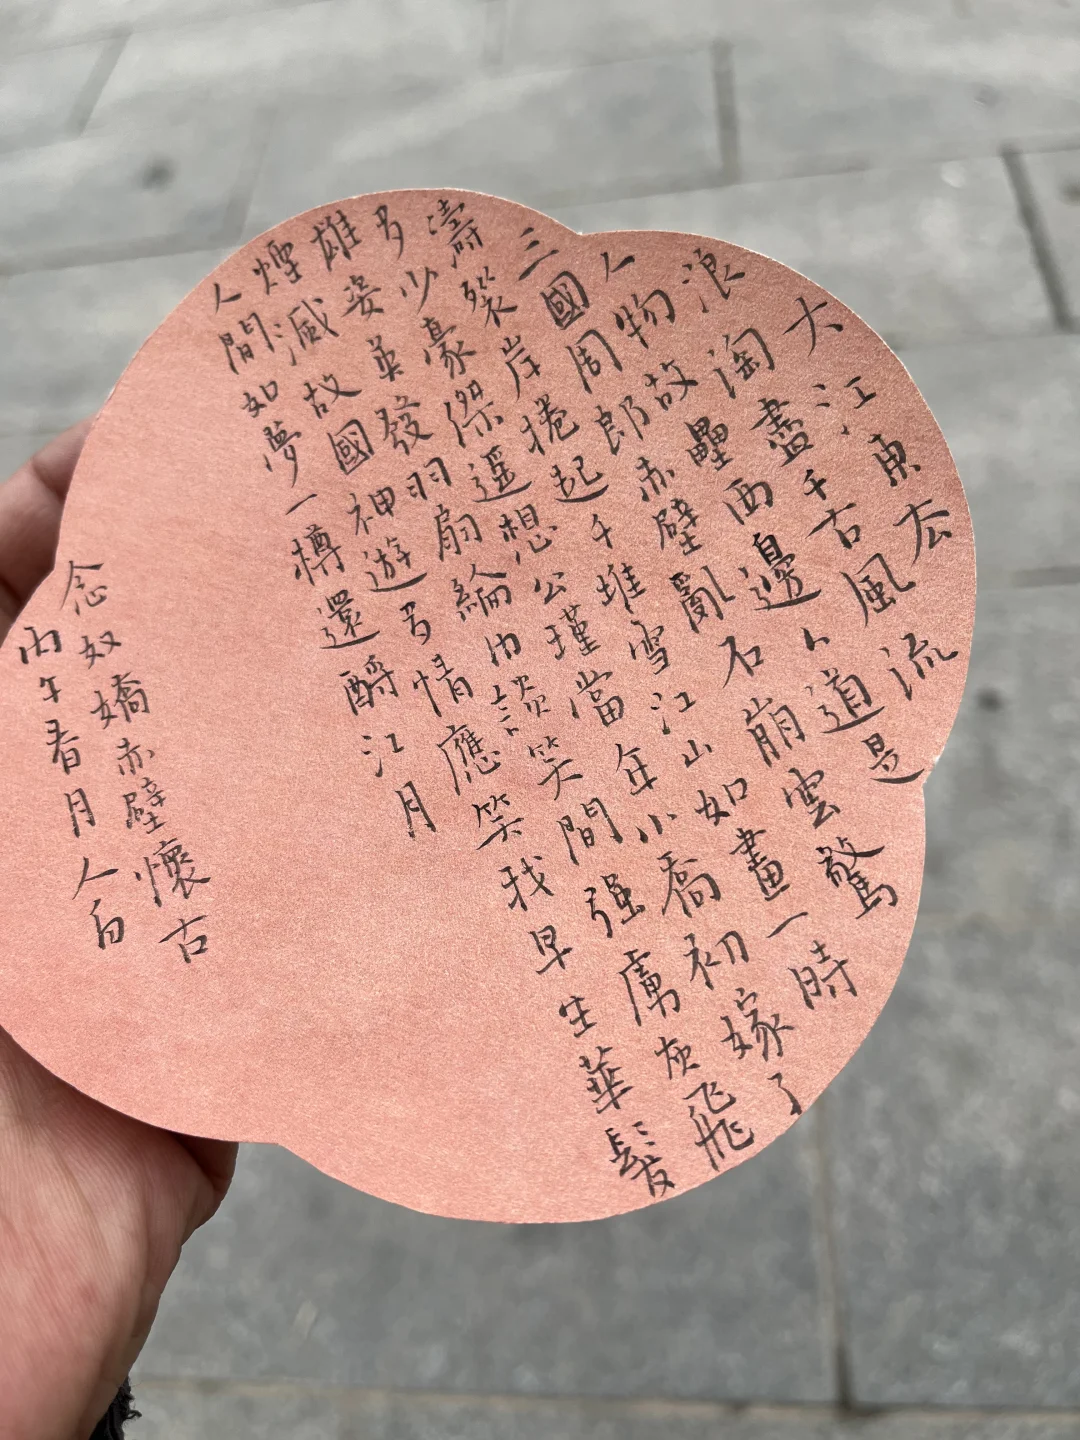 大江東去
浪淘盡千古風流
人物故壘西邊人道是
三國周郎赤壁亂石崩雲驚
濤裂岸捲起千堆雪江山如畫一時
多少豪傑遥想公瑾當年小喬初嫁了
雄姿英發羽扇綸巾談笑間强虜灰飛
煙滅故國神遊多情應笑我早生華髮
人間如夢一樽還酹江月
念奴嬌赤壁懷古
丙午春月人白